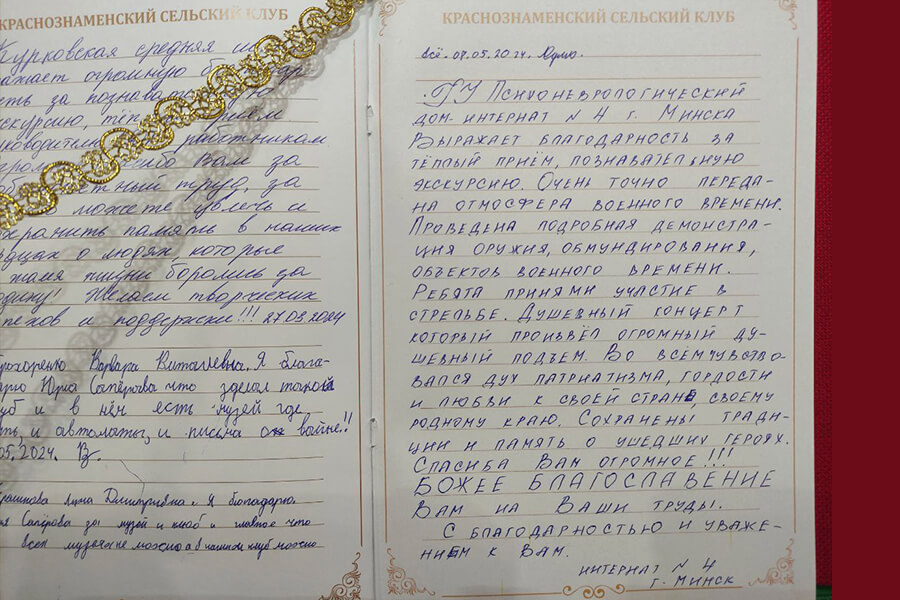 КРАСНОЗНАМЕНСКИЙ СЕЛЬСКИЙ КЛУБ
Журковская средняя
ражает огромную
ость за
скурсию,
работникам
Вам за
труд, за
можете увлечь и
охранить память в наших
рдцах о людях, которые
жизни боролись за
одину! Желаем творческих
пехов и поддержки!!! 27.03.2024
рохоренко Варвара Виталиевна. Я благо-
дарю Юрия Сапёрова что зделал такой
уб и в нём есть музей где
ть, и автоматы, и писма о войне!!
05.2024.
Лина Дмитриевна. Я благодарю
я Сапёрова за музей и клуб и главное что
всем музеяне можно а в нашем клуб можно
КРАСНОЗНАМЕНСКИЙ СЕЛЬСКИЙ КЛУБ
всё. 07.05.2024.
ГУ Психоневрологический
дом-интернат N 4 г. Минска
Выражает благодарность за
тёплый приём, познавательную
экскурсию. Очень точно переда-
на отмосфера военного времени.
Проведена подробная демонстра-
ция оружия, обмундирования,
объектов военного времени.
Ребята принями участие в
стрельбе. Душевный концерт
который произвёл огромный ду-
шевный подъем. Во всем чувство-
вался дух патриатизма, гордости
и любви к своей стране своему
родному краю. Сохранены тради-
ции и память о ушедших героях.
Спасиба Вам огромное!!!
Божее благославение
Вам на Ваши труды.
С благодарностью и уваже-
нием к Вам.
интернат N 4
г. Минск